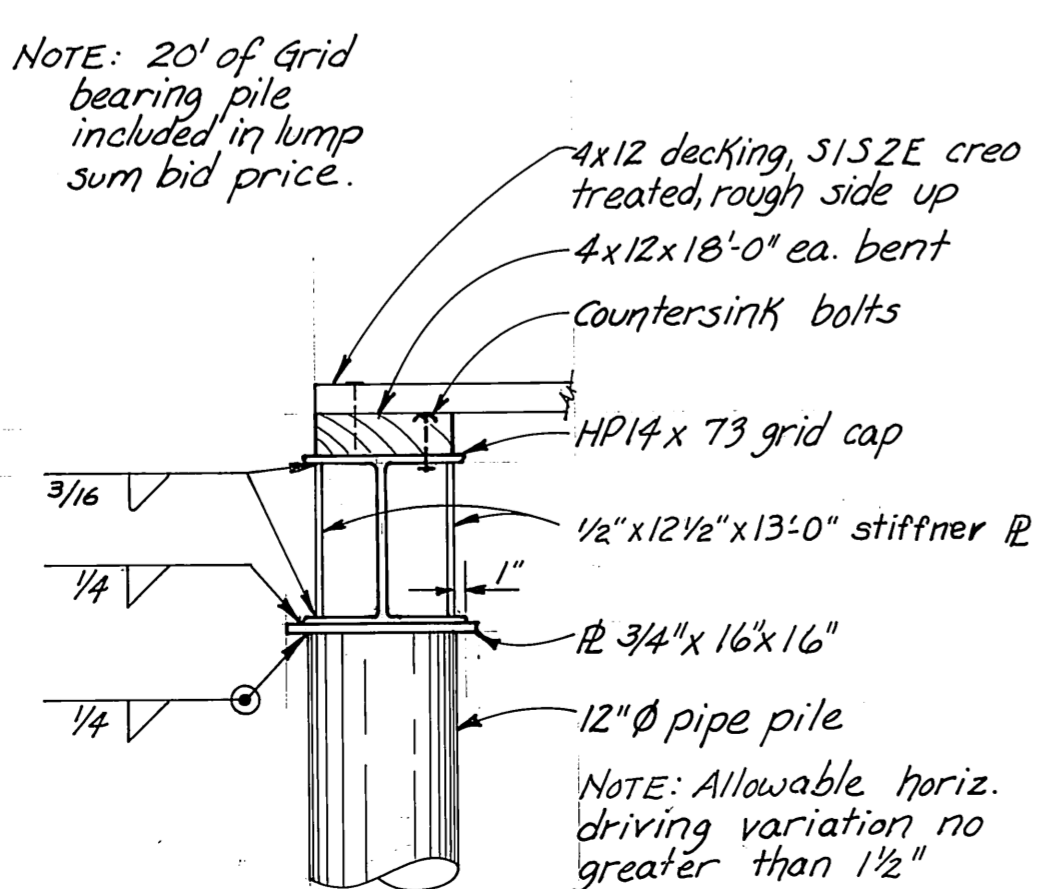 NOTE: 20' of Grid
bearing pile
included in lump
sum bid price.
4x12 decking, S1S2E creo
treated, rough side up
4x12x18'-0" ea. bent
Countersink bolts
HP14 x 73 grid cap
3/16
1/2"x12 1/2"x13'-0" stiffner PL
1"
1/4
PL 3/4"x 16"x16"
1/4
12"Ø pipe pile
NOTE: Allowable horiz.
driving variation no
greater than 1 1/2"